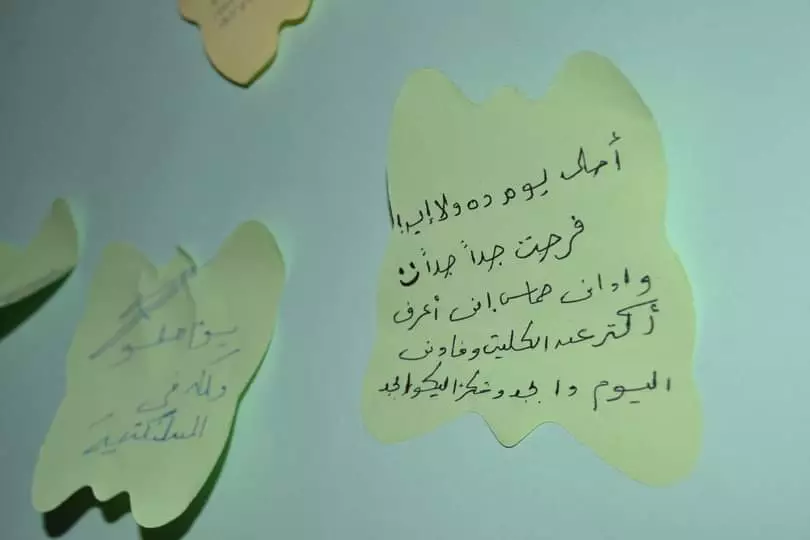 أحلى يوم ده ولا إيه!!
فرحت جداً جداً
وادانى حماس إنى أعرف
أكتر عن الكلية وفادنى
اليوم دا بجد وشكرا ليكوا بجد
يوم حلو
وكله فى